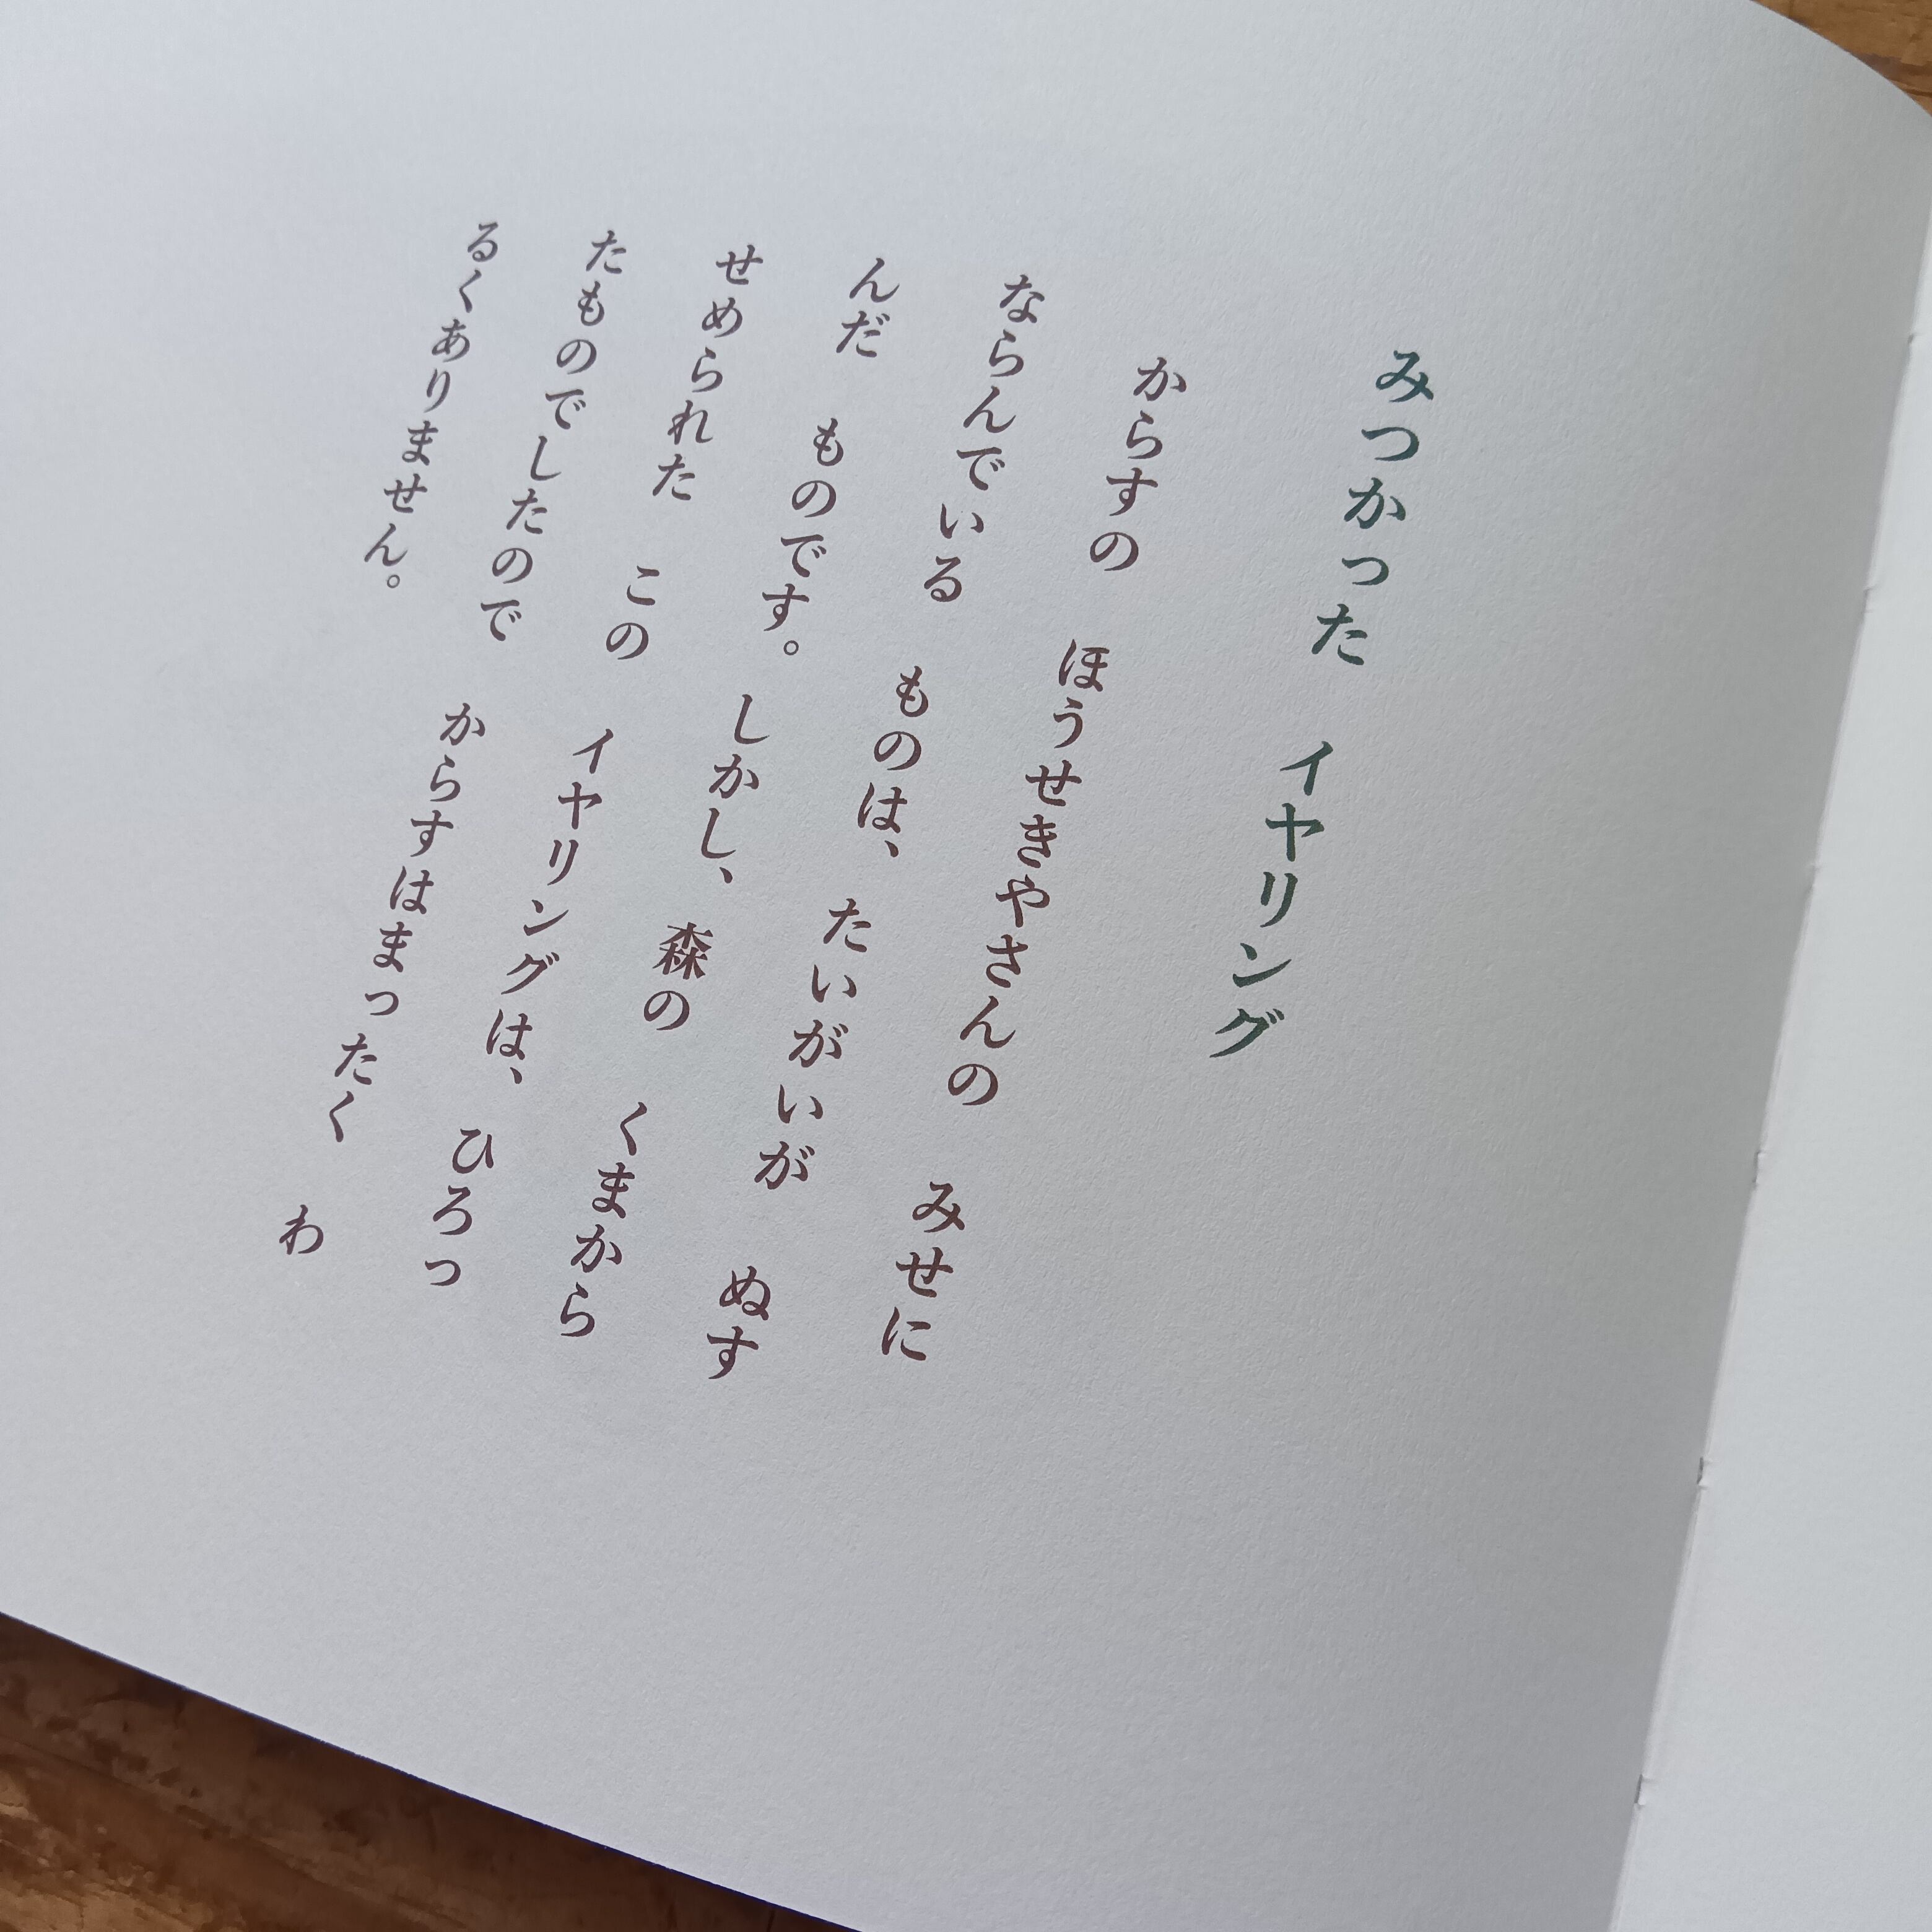 みつかった　イヤリング
からすの　ほうせきやさんの　みせに
ならんでいる　ものは、たいがいが　ぬす
んだ　ものです。しかし、森の　くまから
せめられた　この　イヤリングは、ひろっ
たものでしたので　からすはまったく　わ
るくありません。